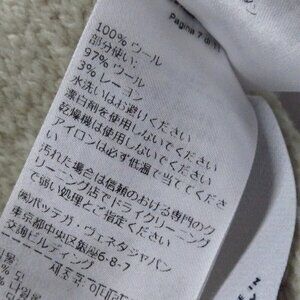 Pagina 7 di
100% ウール
部分使い:
97% ウール
3% レーヨン
水洗いはお避けください
漂白剤を使用しないでください
乾燥機は使用しないでください
アイロンは必ず低温で当ててください
汚れた場合は信頼のおける専門のクリーニング店でドライクリーニングで弱い処理とご指定ください
㈱ボッテガ・ヴェネタジャパン
東京都中央区銀座6-8-7
交詢ビルディング